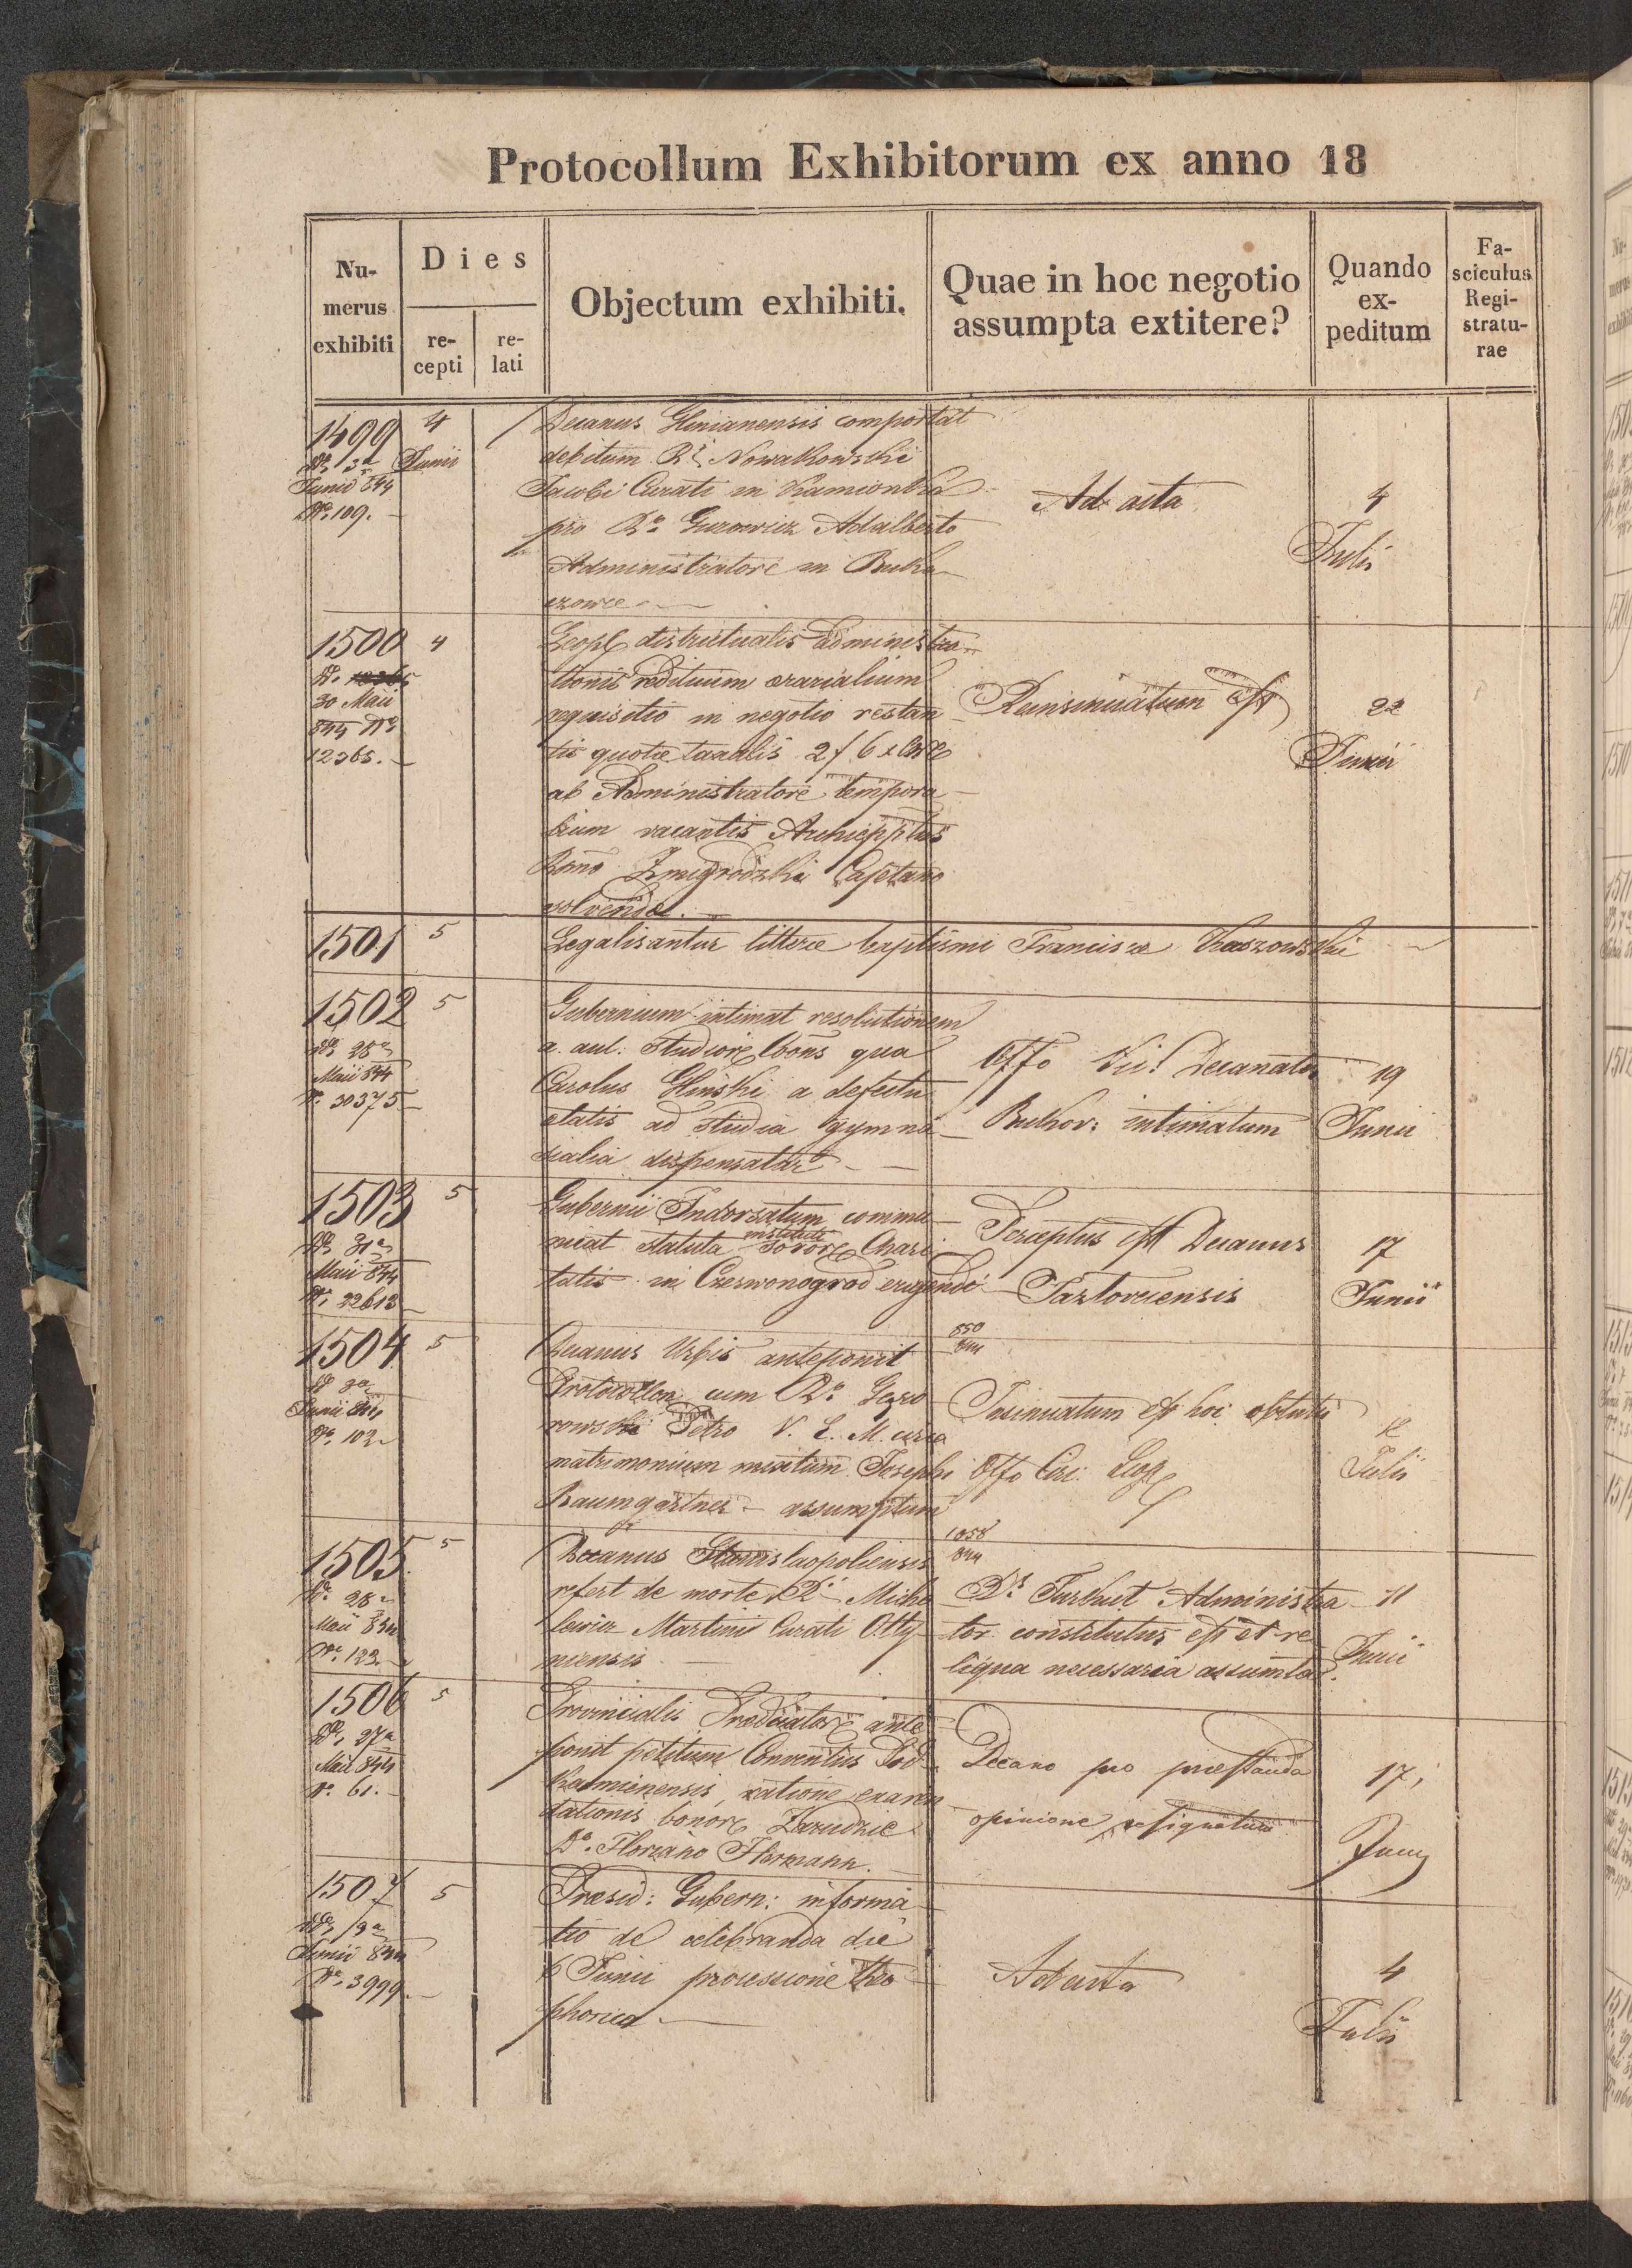 Protocollum Exhibitorum ex anno 18
Nu-
merus
exhibiti
Dies
re-
cepti
re-
lati
Objectum exhibiti.
Quae in hoc negotio
assumpta extitere?
Quando
ex-
peditum
Fa-
sciculus
Regi-
stratu-
rae
1499
Junii 844
No. 109.
4
Junii
Decanus Glinianensis comportat
debitum Rdi Nowakowski
Jacobi Curati in Kamionka
pro Rdo Adalberto
Administratore in Buka
czowce
Ad acta
4
Julii
1500
30 Maii
844 No
12365.
4
Leopol districtualis administra
tionis redituum aerarialium
requisitio in negotio restan
tis quotae taxalis 2 f 6 x
ab Administratore tempora
lium vacantis Archieppatus
Rsmo Zmigrodzki Cajetano
solvendae.
Reinsinuatum est
22
Junii
1501
5
Legalisantur litterae baptismi Franciscae Kraszowskie
1502
28a
Maii 844
No. 30375
5
Gubernium intimat resolutionem
a. aul. studiorum qua
Carolus Glinski a defectu
etatis ad studia gymna
sialia dispensatur
Offo Decanatus
Bukov: intimatum
19
Junii
1503
31a
Maii 844
No. 22613
5
Gubernii Indorsatum commu
nicat statuta instituti Sororum Chari
tatis in Czerwonogrod erigendi
Perceptus est Decanus
Jazlovecensis
17
Junii
1504
3a
Junii 844
No. 102
5
Decanus Urbis anteponit
Protocollon cum Rdo
Petro V. L. M. circa
matrimonium mixtum Josephi
Baumgartner assumptum
850
844
Insinuatum est hoc
Offo Circ. Leop
12
Julii
1505.
28a
Maii 844
No. 123.
5
Decanus Stanislaopoliensis
refert de morte Rdi Micha
lewicz Martini Curati Otty
niensis
1058
844
Rds Administra
tor constitutus est et re
liqua necessaria assumta.
11
Junii
1506
27a
Maii 844
No. 61.
5
Provincialis Praedicatorum ante
ponit petitum Conventus Pod
kaminensis, ratione exaren
dationis bonorum Zarudzie
Do. Floriano Hermann.
Decano pro praestanda
opinione resignatum
17.
Juny
1507
Junii 844
No. 3999.
5
Praesid: Gubern: informa
tio de celebranda die
6 Junii processione theo
phorica
Ad acta
4
Julii